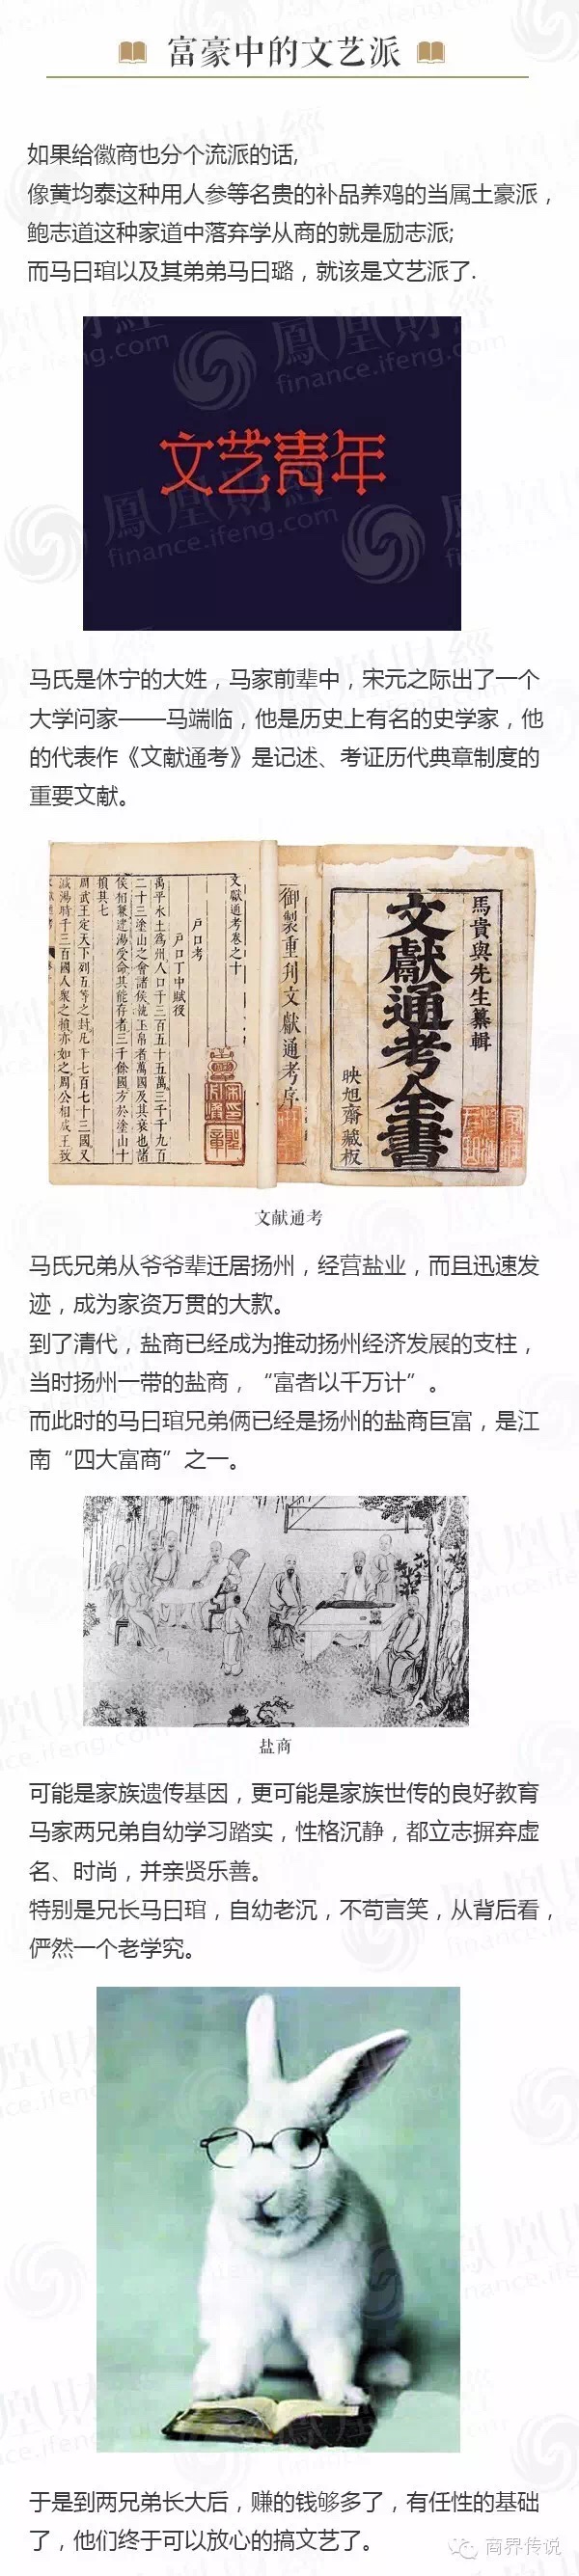 富豪中的文艺派
如果给徽商也分个流派的话,
像黄均泰这种用人参等名贵的补品养鸡的当属土豪派，
鲍志道这种家道中落弃学从商的就是励志派;
而马曰琯以及其弟弟马曰璐，就该是文艺派了.
鳳凰财經
finance.ifeng.com
文艺青年
马氏是休宁的大姓，马家前辈中，宋元之际出了一个
大学问家——马端临，他是历史上有名的史学家，他
的代表作《文献通考》是记述、考证历代典章制度的
重要文献。
馬貴與先生纂輯
文獻通考全書
映旭齋藏板
御製重刊文獻通考序
文獻通考卷之十
戶口考
戶口丁中賦役
禹平水土爲九州人口千三百五十五萬三千九百
二十三塗山之會諸侯執玉帛者萬國及其衰也諸
侯相兼逮湯受命其能存者三千餘國方於塗山十
損其七
周武王定天下列五等之封凡千七百七十三國又
減湯時千三百國人衆之損亦如之周公相成王致
文献通考
马氏兄弟从爷爷辈迁居扬州，经营盐业，而且迅速发
迹，成为家资万贯的大款。
到了清代，盐商已经成为推动扬州经济发展的支柱，
当时扬州一带的盐商，“富者以千万计”。
而此时的马曰琯兄弟俩已经是扬州的盐商巨富，是江
南“四大富商”之一。
盐商
可能是家族遗传基因，更可能是家族世传的良好教育
马家两兄弟自幼学习踏实，性格沉静，都立志摒弃虚
名、时尚，并亲贤乐善。
特别是兄长马曰琯，自幼老沉，不苟言笑，从背后看，
俨然一个老学究。
于是到两兄弟长大后，赚的钱够多了，有任性的基础
了，他们终于可以放心的搞文艺了。
商界传说